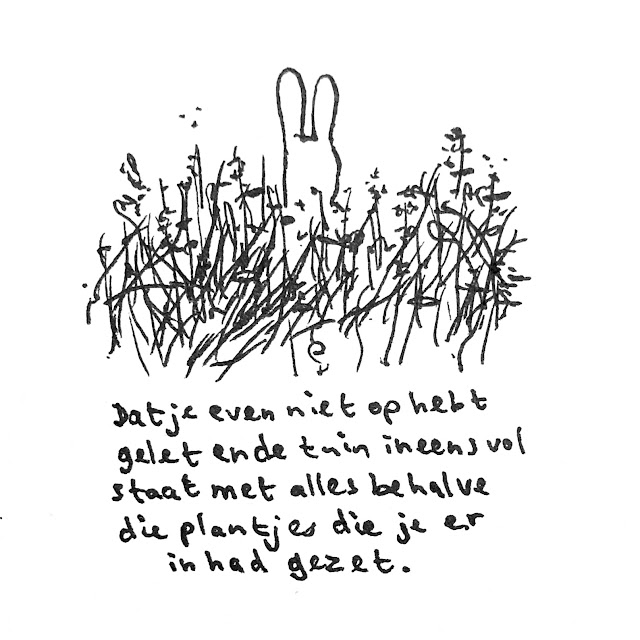 Dat je even niet op hebt
gelet en de tuin ineens vol
staat met alles behalve
die plantjes die je er
in had gezet.